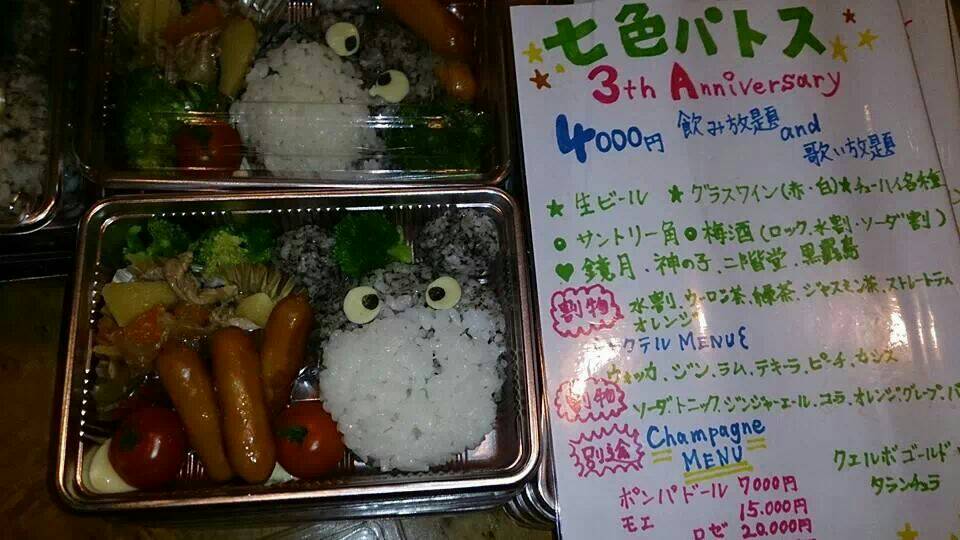 七色パトス
3th Anniversary
4000円 飲み放題 and
歌い放題
★生ビール ★グラスワイン(赤・白)★チューハイ各種
●サントリー角●梅酒(ロック、水割・ソーダ割)
♥鏡月、神の子、二階堂、黒霧島
割物 水割、ウーロン茶、緑茶、ジャスミン茶、ストレートティ
オレンジ
カクテルMENU
ウォッカ、ジン、ラム、テキーラ、ピーチ、カシス
割物 ソーダ、トニック、ジンジャーエール、コーラ、オレンジ、グレープ、パ
別途 Champagne
MENU
クエルボゴールド
タランチュラ
ポンパドール 7000円
モエ 15.000円
ロゼ 20.000円